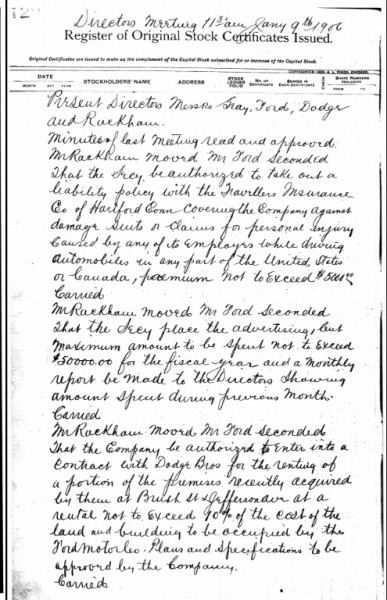 Directors Meeting 11 30 am Jany 9th 1906
Register of Original Stock Certificates Issued.
Original Certificates are issued to make up the complement of the Capital Stock subscribed for or increase of the Capital Stock.
DATE STOCKHOLDERS' NAME ADDRESS STOCK LEDGER FOLIO No. of CERTIFICATE No. SHARES IN EACH CERTIFICATE SHARE NUMBERS INCLUSIVE
MONTH DAY YEAR FROM TO
Present Directors Messrs Gray, Ford, Dodge
and Rackham.
Minutes of last Meeting read and approved.
Mr Rackham moved Mr Ford Seconded
That the Secy. be authorized to take out a
liability policy with the Travellers Insurance
Co of Hartford Conn covering the Company against
damage suits or claims for personal injury
caused by any of its Employes while driving
automobiles in any part of the United States
or Canada, premium not to Exceed
Carried
Mr Rackham moved Mr Ford Seconded
That the Secy place the advertising, but
Maximum amount to be spent not to exceed
$50000.00 for the fiscal year and a Monthly
report be made to the Directors showing
amount spent during previous Month.
Carried
Mr Rackham Moved Mr Ford Seconded
That the Company be authorized to Enter into a
Contract with Dodge Bros for the renting of
a portion of the premises recently acquired
by them at Brush St & Jefferson at a
rental not to Exceed 90% of the cost of the
land and building to be occupied by the
Ford Motor Co. Plans and Specifications to be
approved by the Company.
Carried